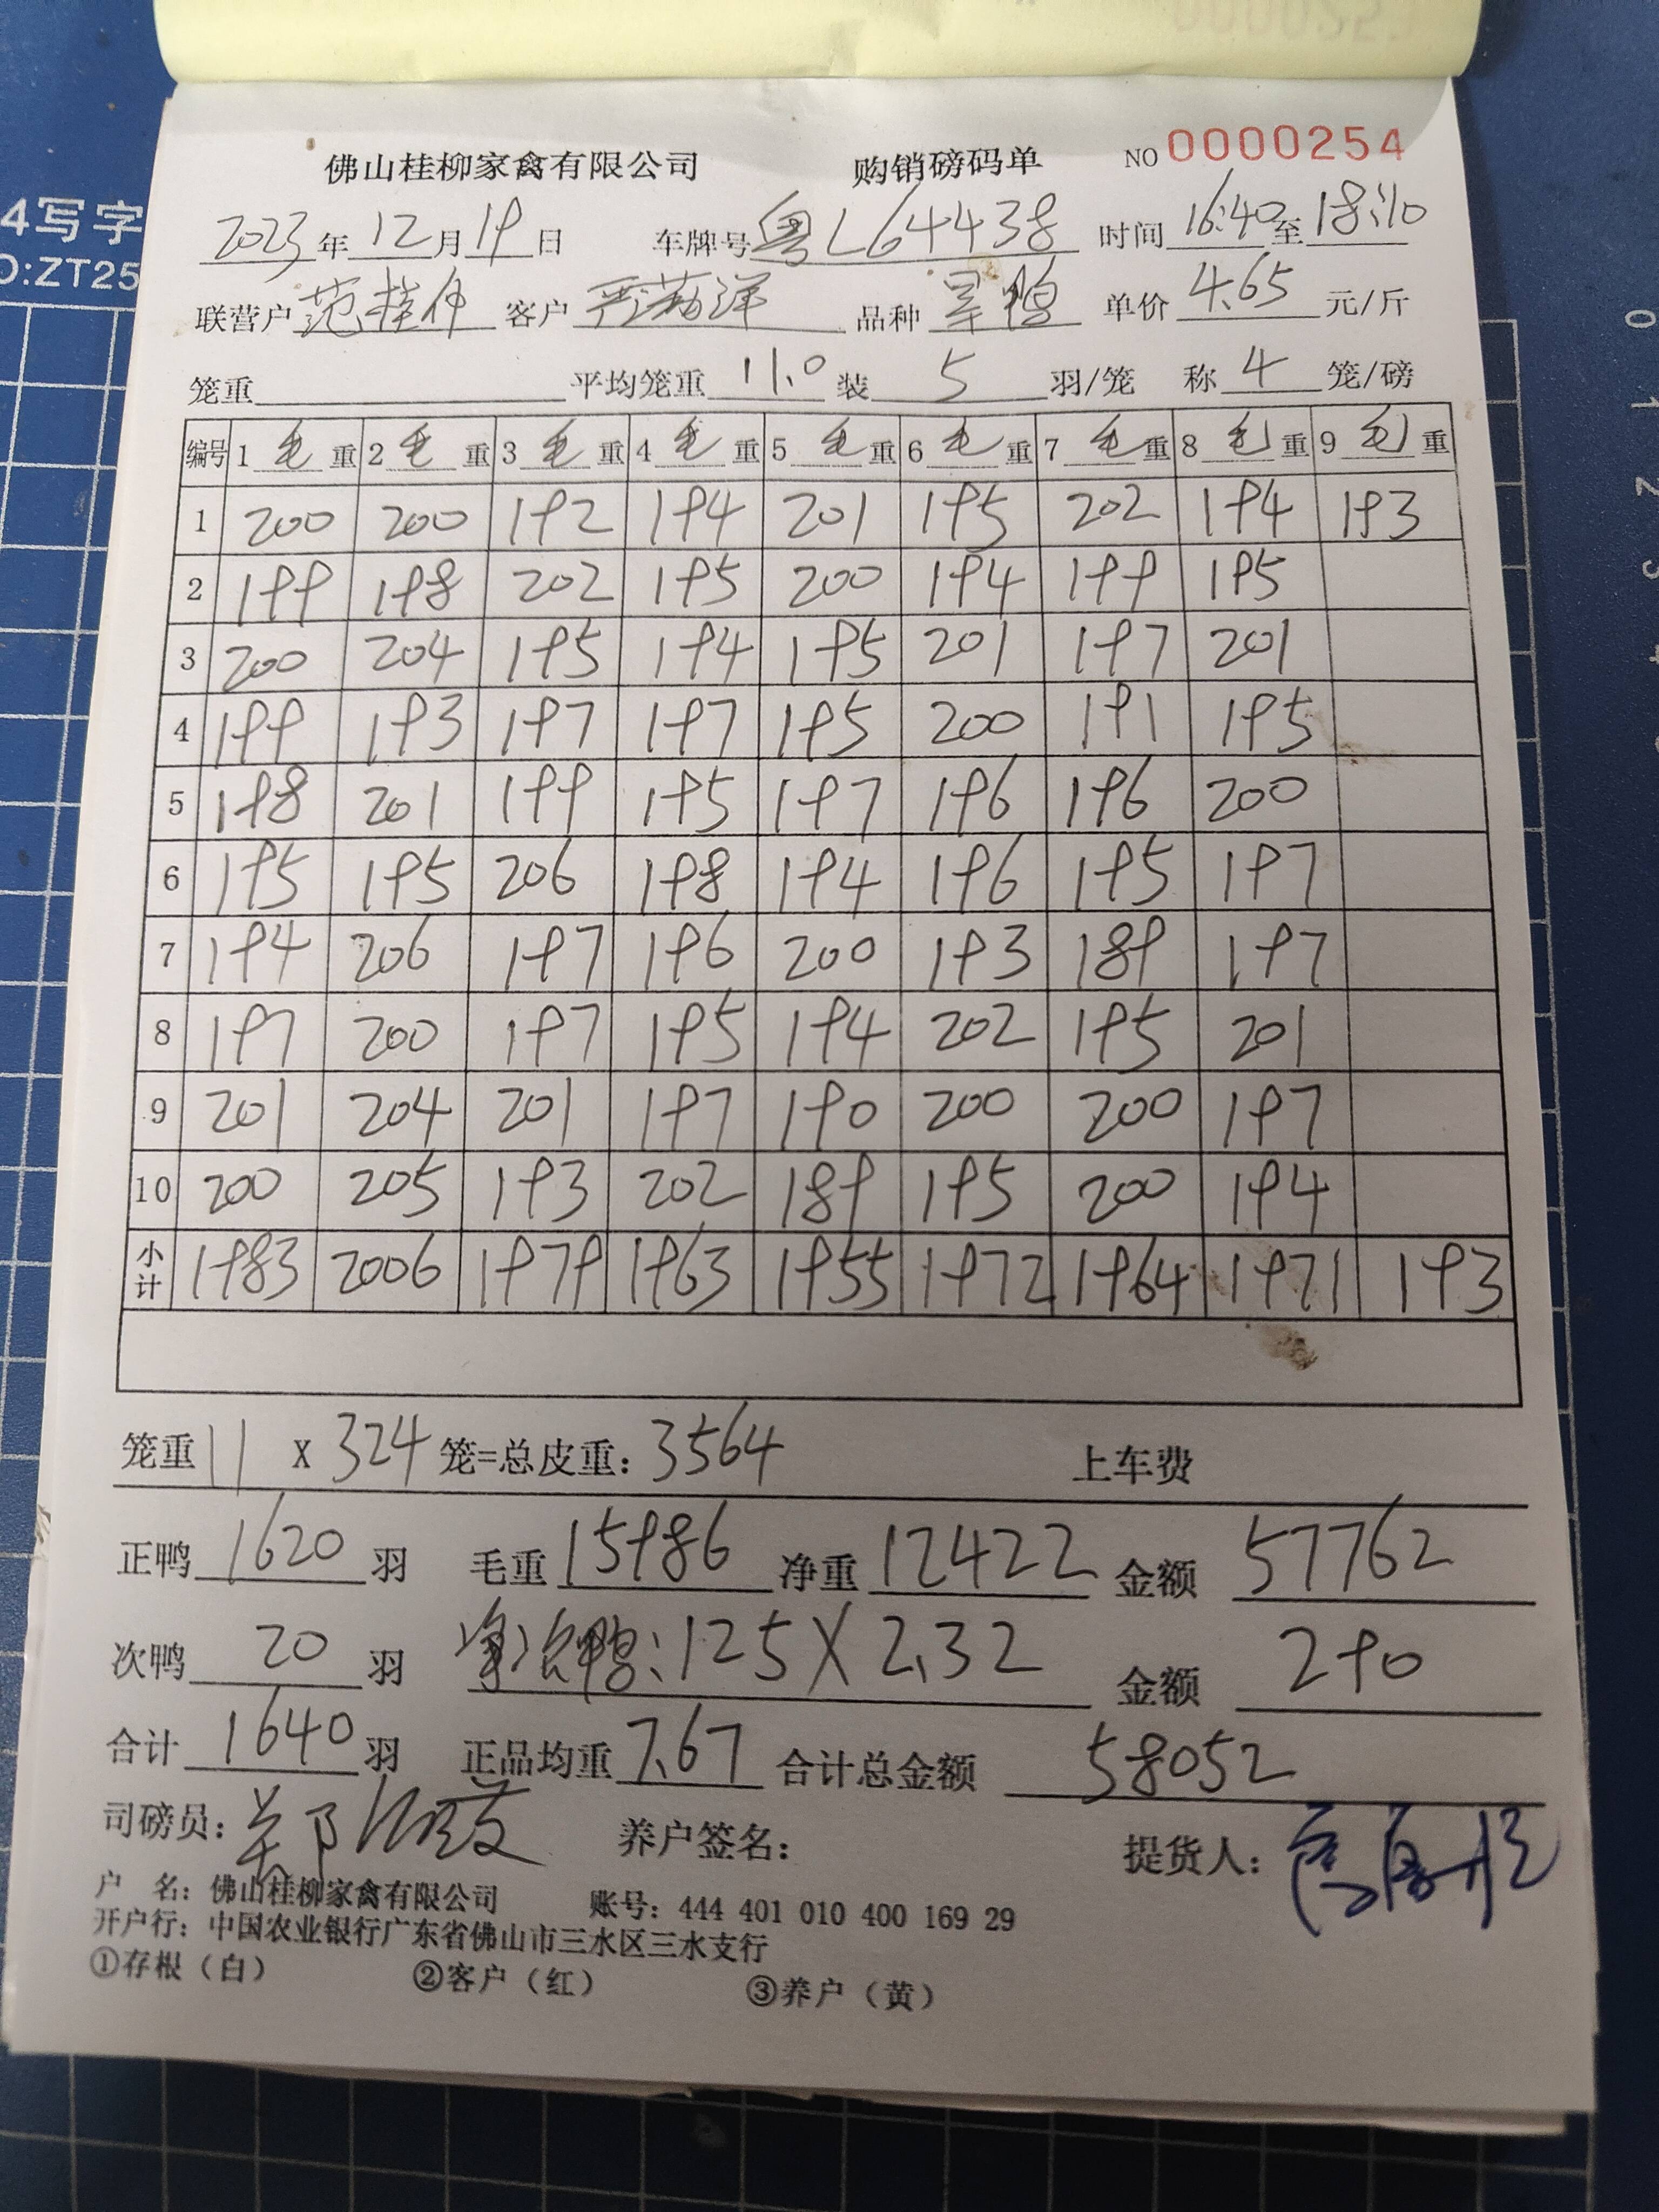 0000253
4写字
O:ZT25
佛山桂柳家禽有限公司 购销磅码单 NO 0000254
2023年12月19日 车牌号粤L64438 时间16:40至18:10
联营户范桂伟 客户 品种旱鸭 单价4.65元/斤
笼重 平均笼重11.0装5羽/笼 称4笼/磅
编号 1毛重 2毛重 3毛重 4毛重 5毛重 6毛重 7毛重 8毛重 9毛重
1 200 200 192 194 201 195 202 194 193
2 199 198 202 195 200 194 199 195
3 200 204 195 194 195 201 197 201
4 199 193 197 197 195 200 191 195
5 198 201 199 195 197 196 196 200
6 195 195 206 198 194 196 195 197
7 194 206 197 196 200 193 189 197
8 197 200 197 195 194 202 195 201
9 201 204 201 197 190 200 200 197
10 200 205 193 202 189 195 200 194
小计 1983 2006 1979 1963 1955 1972 1964 1971 193
笼重11 X 324笼=总皮重：3564 上车费
正鸭1620羽 毛重15986 净重12422 金额57762
次鸭20羽 净次鸭：125X2.32 金额290
合计1640羽 正品均重7.67 合计总金额58052
司磅员：郑 养户签名： 提货人：
户 名：佛山桂柳家禽有限公司 账号：444 401 010 400 169 29
开户行：中国农业银行广东省佛山市三水区三水支行
①存根（白） ②客户（红） ③养户（黄）